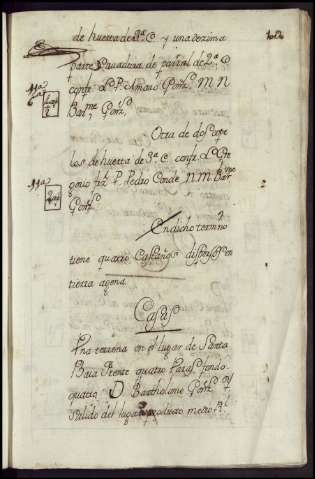 de huerta de 3ª C y una dezima
parte Favadura de pavial de 2ª C
confr. L. P. Amaro Gonz.s M. N
Bar.me Gonz.s
Otra de dos cope
los de huerta de 3ª C. confr. L. Gre
gorio frz P. Pedro Conde N. M. Bar.me
Gonz.s
En dicho termino
tiene quatro Castaños dispersos en
tierra agena
Casas
Una terrena en el lugar de Santa
Baia Frente quatro Varas fondo
quatro D Bartholome Gonz.s y
Salido del lugar producto medio R.l